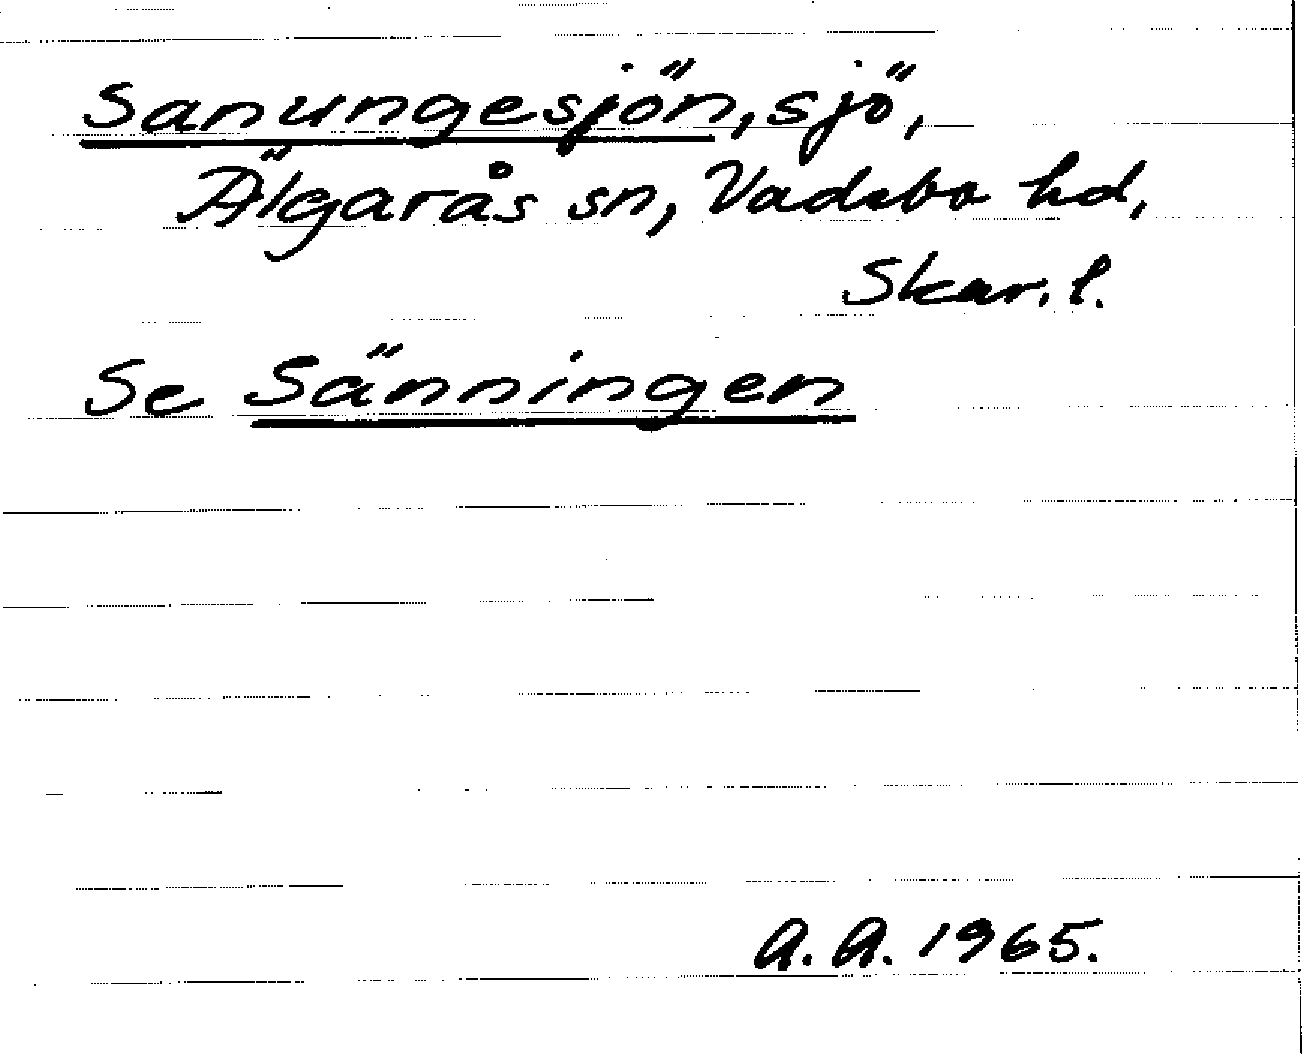 Sanungesjön, sjö,
Älgarås sn, Vadsbo hd,
Skar. l.
Se Sänningen
A. A. 1965.